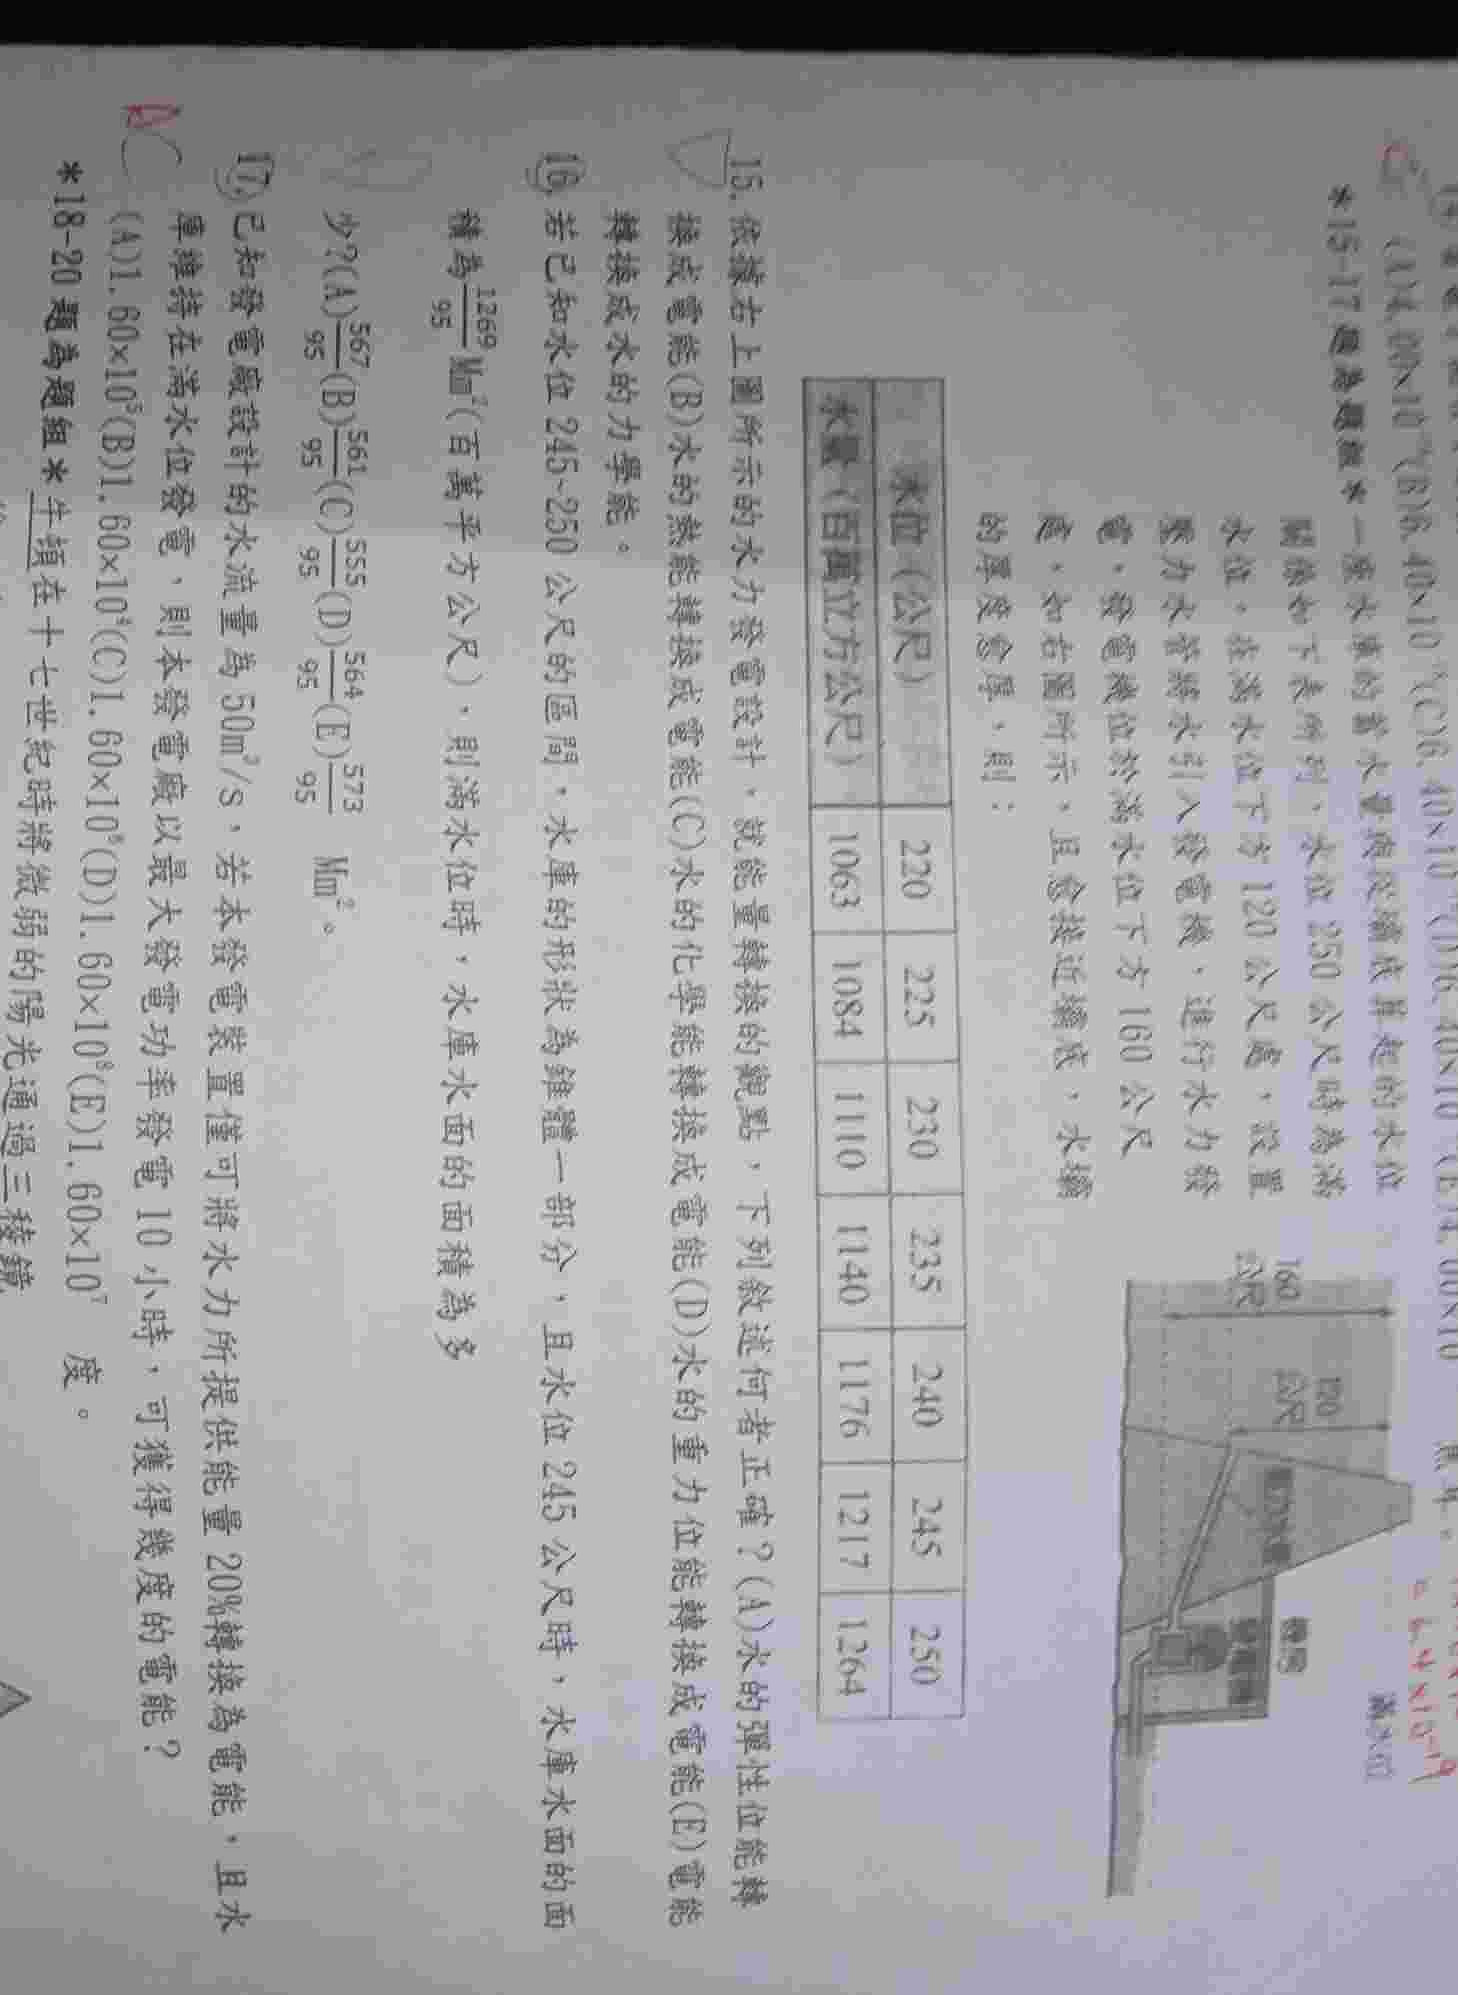 (A)4.00×10 (B)6.40×10 (C)6.40×10 (D)6.40×10 (E)4.00×10 焦耳。
= 6.4×10-19
C
*15-17題為題組* 一座水庫的蓄水量與從壩底算起的水位
關係如下表所列,水位 250 公尺時為滿
水位。在滿水位下方 120 公尺處,設置
壓力水管將水引入發電機,進行水力發
電,發電機位於滿水位下方 160 公尺
處,如右圖所示,且愈接近壩底,水壩
的厚度愈厚,則:
滿水位
160 公尺
120 公尺
壓力水管
機房
發電機
水位(公尺) 220 225 230 235 240 245 250
水量(百萬立方公尺) 1063 1084 1110 1140 1176 1217 1264
15. 依據右上圖所示的水力發電設計,就能量轉換的觀點,下列敘述何者正確?(A)水的彈性位能轉
換成電能(B)水的熱能轉換成電能(C)水的化學能轉換成電能(D)水的重力位能轉換成電能(E)電能
轉換成水的力學能。
16. 若已知水位 245~250 公尺的區間,水庫的形狀為錐體一部分,且水位 245 公尺時,水庫水面的面
積為 1269/95 Mm²(百萬平方公尺),則滿水位時,水庫水面的面積為多
少?(A) 567/95 (B) 561/95 (C) 555/95 (D) 564/95 (E) 573/95 Mm²。
17. 已知發電廠設計的水流量為 50m³/s,若本發電裝置僅可將水力所提供能量 20%轉換為電能,且水
庫維持在滿水位發電,則本發電廠以最大發電功率發電 10 小時,可獲得幾度的電能?
A
(A)1.60×10⁵(B)1.60×10⁴(C)1.60×10⁶(D)1.60×10⁸(E)1.60×10⁷ 度。
*18-20 題為題組* 牛頓在十七世紀時將微弱的陽光通過三稜鏡